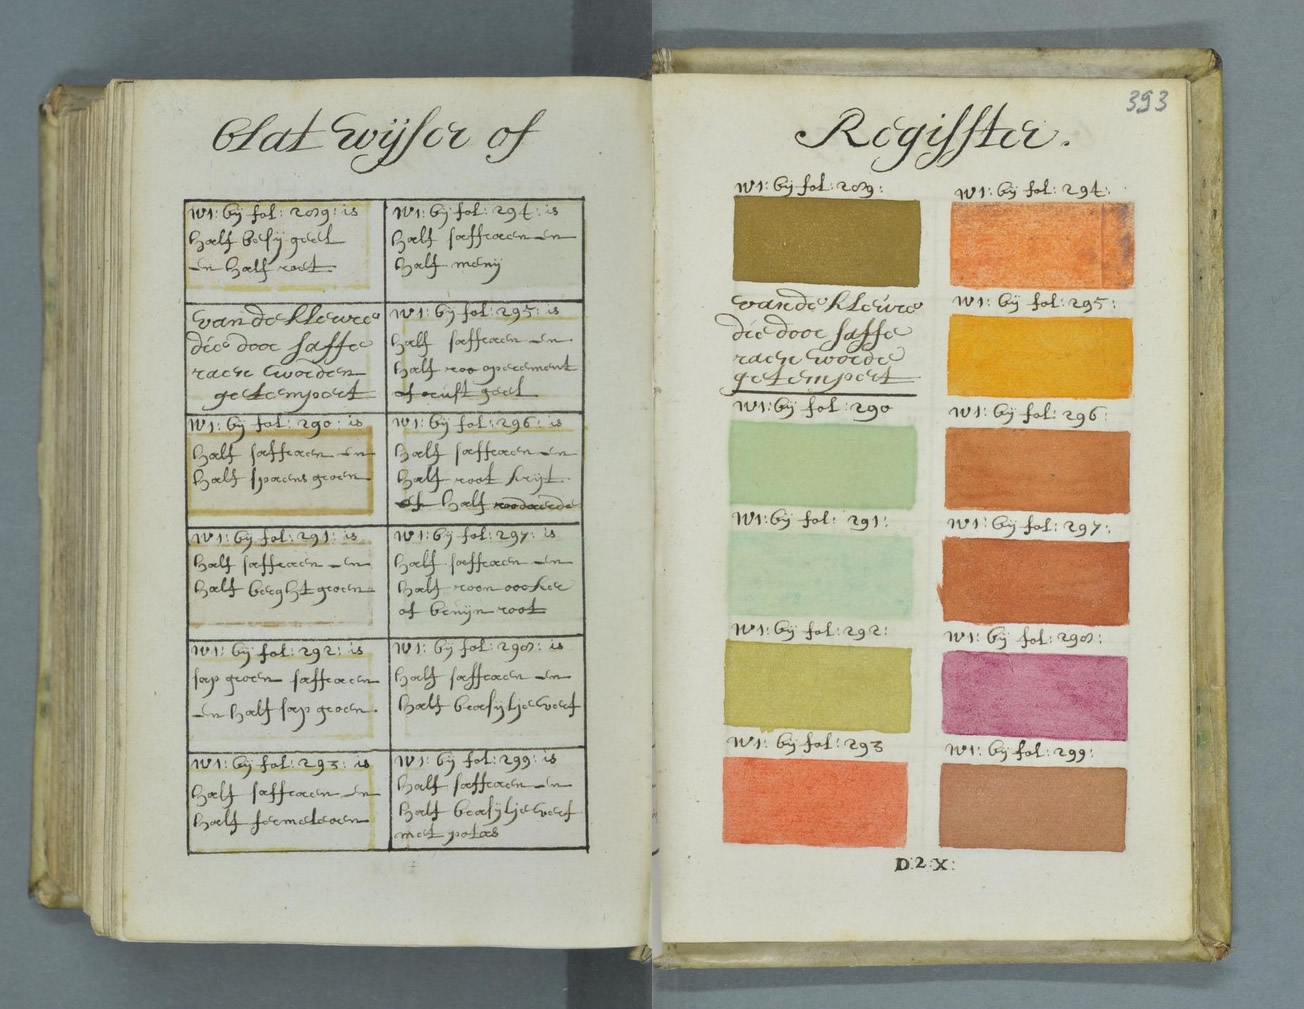 Blat wijser of
W1: bij fol: 289: is
half besij geel
en half roet
W1: bij fol: 294: is
half saffraen en
half menij
van de kleure
die door saffe
rane worden
getempert
W1: bij fol: 295: is
half saffraen en
half roo operement
of ruist geel
W1: bij fol: 290: is
half saffraen en
half spaens groen
W1: bij fol: 296: is
half saffraen en
half root krijt
of half roodaerde
W1: bij fol: 291: is
half saffraen en
half berght groen
W1: bij fol: 297: is
half saffraen en
half roon oocker
of bruijn root
W1: bij fol: 292: is
sap groen saffraen
en half sap groen.
W1: bij fol: 298: is
half saffraen en
half brasijlje verf
W1: bij fol: 293: is
half saffraen en
half fermeloen
W1: bij fol: 299: is
half saffraen en
half brasijlje verf
met potas
393
Regisster.
W1: bij fol: 289:
W1: bij fol: 294:
van de kleure
die door saffe
rane worde
getempert
W1: bij fol: 295:
W1: bij fol: 290
W1: bij fol: 296:
W1: bij fol: 291:
W1: bij fol: 297:
W1: bij fol: 292:
W1: bij fol: 298:
W1: bij fol: 293
W1: bij fol: 299:
D:2:X: